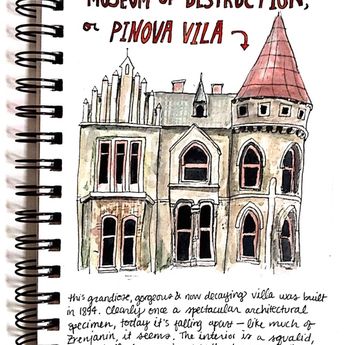 MUSEUM OF DESTRUCTION,
or PINOVA VILA
this grandiose, gorgeous & now decaying villa was built
in 1894. Clearly once a spectacular architectural
specimen, today it's falling apart — like much of
Zrenjanin, it seems. The interior is a squalid,